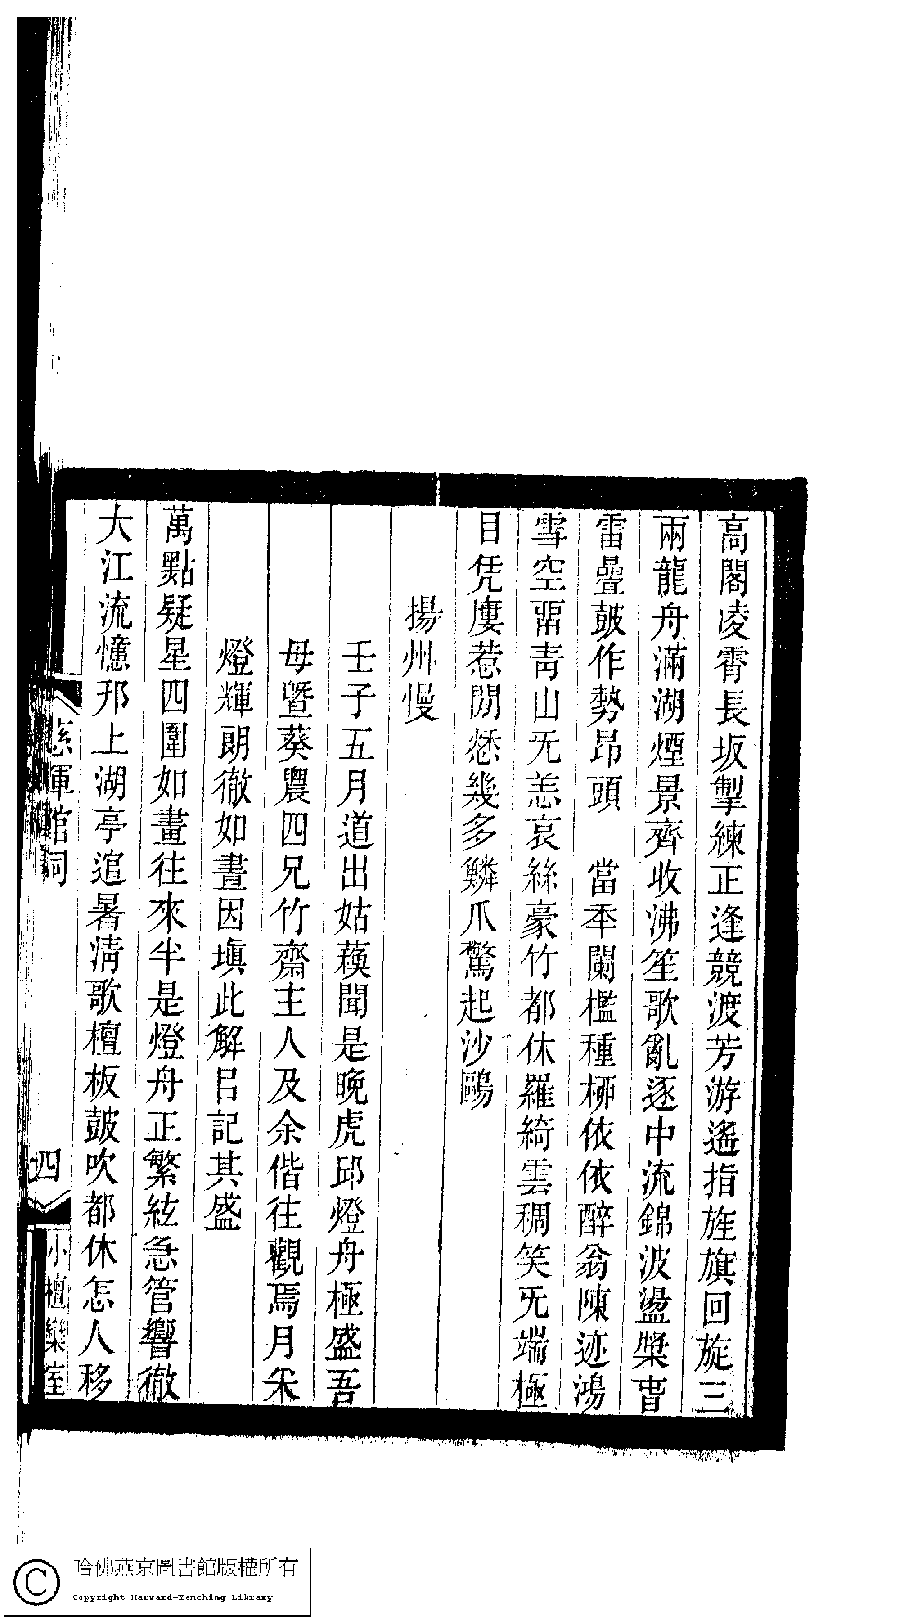 高閣凌霄長坂掣練正逢競渡芳游遙指旌旗回旋三
兩龍舟滿湖煙景齊收沸笙歌亂逐中流錦波盪槳旹
雷疊鼓作勢昂頭　當年闌檻種栁依依醉翁陳迹鴻
雪空畱青山无恙哀絲豪竹都休羅綺雲稠笑无端極
目凭廔惹閒愁幾多鱗爪驚起沙鷗
揚州慢
壬子五月道出姑蘓聞是晚虎邱燈舟極盛吾
母暨葵農四兄竹齋主人及余偕往觀焉月來
燈輝朗徹如晝因塡此解㠯記其盛
萬點疑星四圍如畫往來半是燈舟正繁絃急管響徹
大江流憶邗上湖亭逭暑淸歌檀板鼓吹都休怎人移
慈暉館詞
四
小檀欒室
哈佛燕京圖書館版權所有
Copyright Harvard-Yenching Library